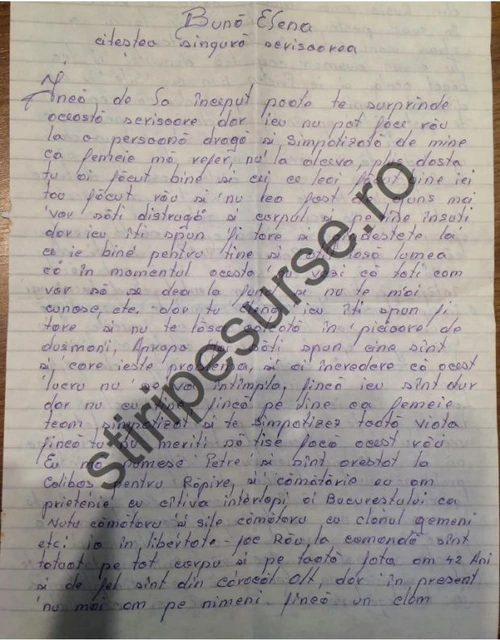 Bună Elena
citeștea singură scrisoarea
Încă de la început poate te surprinde
această scrisoare dar ieu nu pot face rău
la o persoană dragă și simpotizată de mine
ca femeie mă refer, nu la altceva
tu ai făcut bine și cei ce leai făcut bine iei
tou făcut rău și nu leo fost de ajuns mai
vor săti distrugă și corpul și pe tine însuti
dar ieu îti spun fi tare și
ce ie bine pentru tine și lasă lumea
că în momentul acesta vezi că toti com
vor să se dea la și nu te mai
cunosc, etc. dar tu ieu îti spun fi
tare și nu te lăsa călcată în picioare de
dusmani, Apropo săti spun cine sînt
și care ieste problema, și ai încredere că acest
lucru nu se va întîmpla, fincă ieu sînt dur
dar nu cu tine fincă pe tine ca femeie
team simpotizat și te simpotizez toată viata
fincă tu nu meriti să tise facă acest rău
Eu mă numesc Petre și sînt arestat la
Colibas pentru Răpire, și cămătărie au am
prietenie cu cîtiva interlopi ai Bucurestului ca
Nutu cămătaru și sile cămătaru cu clanul gemeni
etc; ia în libertate fac Rău la comandă sînt
tatuat pe tot corpu și pe toată fata am 42 Ani
și de fel sînt din caracăl Olt, dar în present
nu mai am pe nimeni fincă un clam
stiripesurse.ro